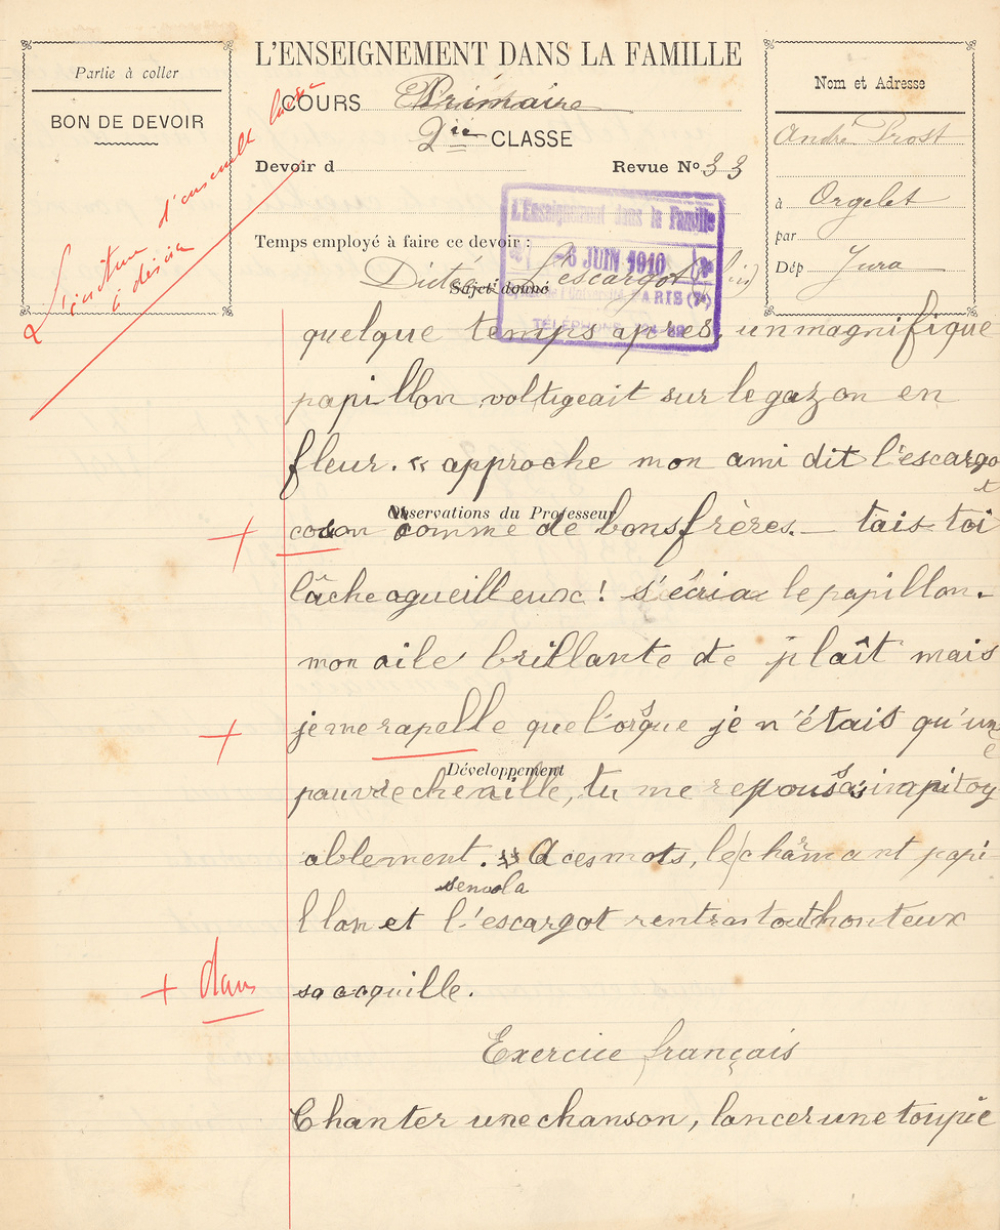 Partie à coller
BON DE DEVOIR
L'écriture d'ensemble laisse
à désirer
L'ENSEIGNEMENT DANS LA FAMILLE
COURS Primaire
2ie CLASSE
Devoir d
Revue No 33
Nom et Adresse
André Prost
à Orgelet
par
Dép Jura
L'Enseignement dans la Famille
6 JUIN 1910
PARIS (7e)
Temps employé à faire ce devoir :
Sujet donné
Dictée L'escargot (fin)
quelque temps apres, un magnifique
papillon voltigeait sur le gazon en
fleur. « approche mon ami dit l'escargot
Observations du Professeur
coson comme de bons frères. — tais toi
lâche agueilleux ! s'écria le papillon.
mon aile brillante te plaît mais
je me rapelle que l'orsque je n'étais qu'une
Développement
pauvre chenille, tu me repoussas impitoy
ablement. » A ces mots, le charmant papi
s'envola
llon et l'escargot rentra tout honteux
+ dans sa coquille.
Exercice français
Chanter une chanson, lancer une toupie